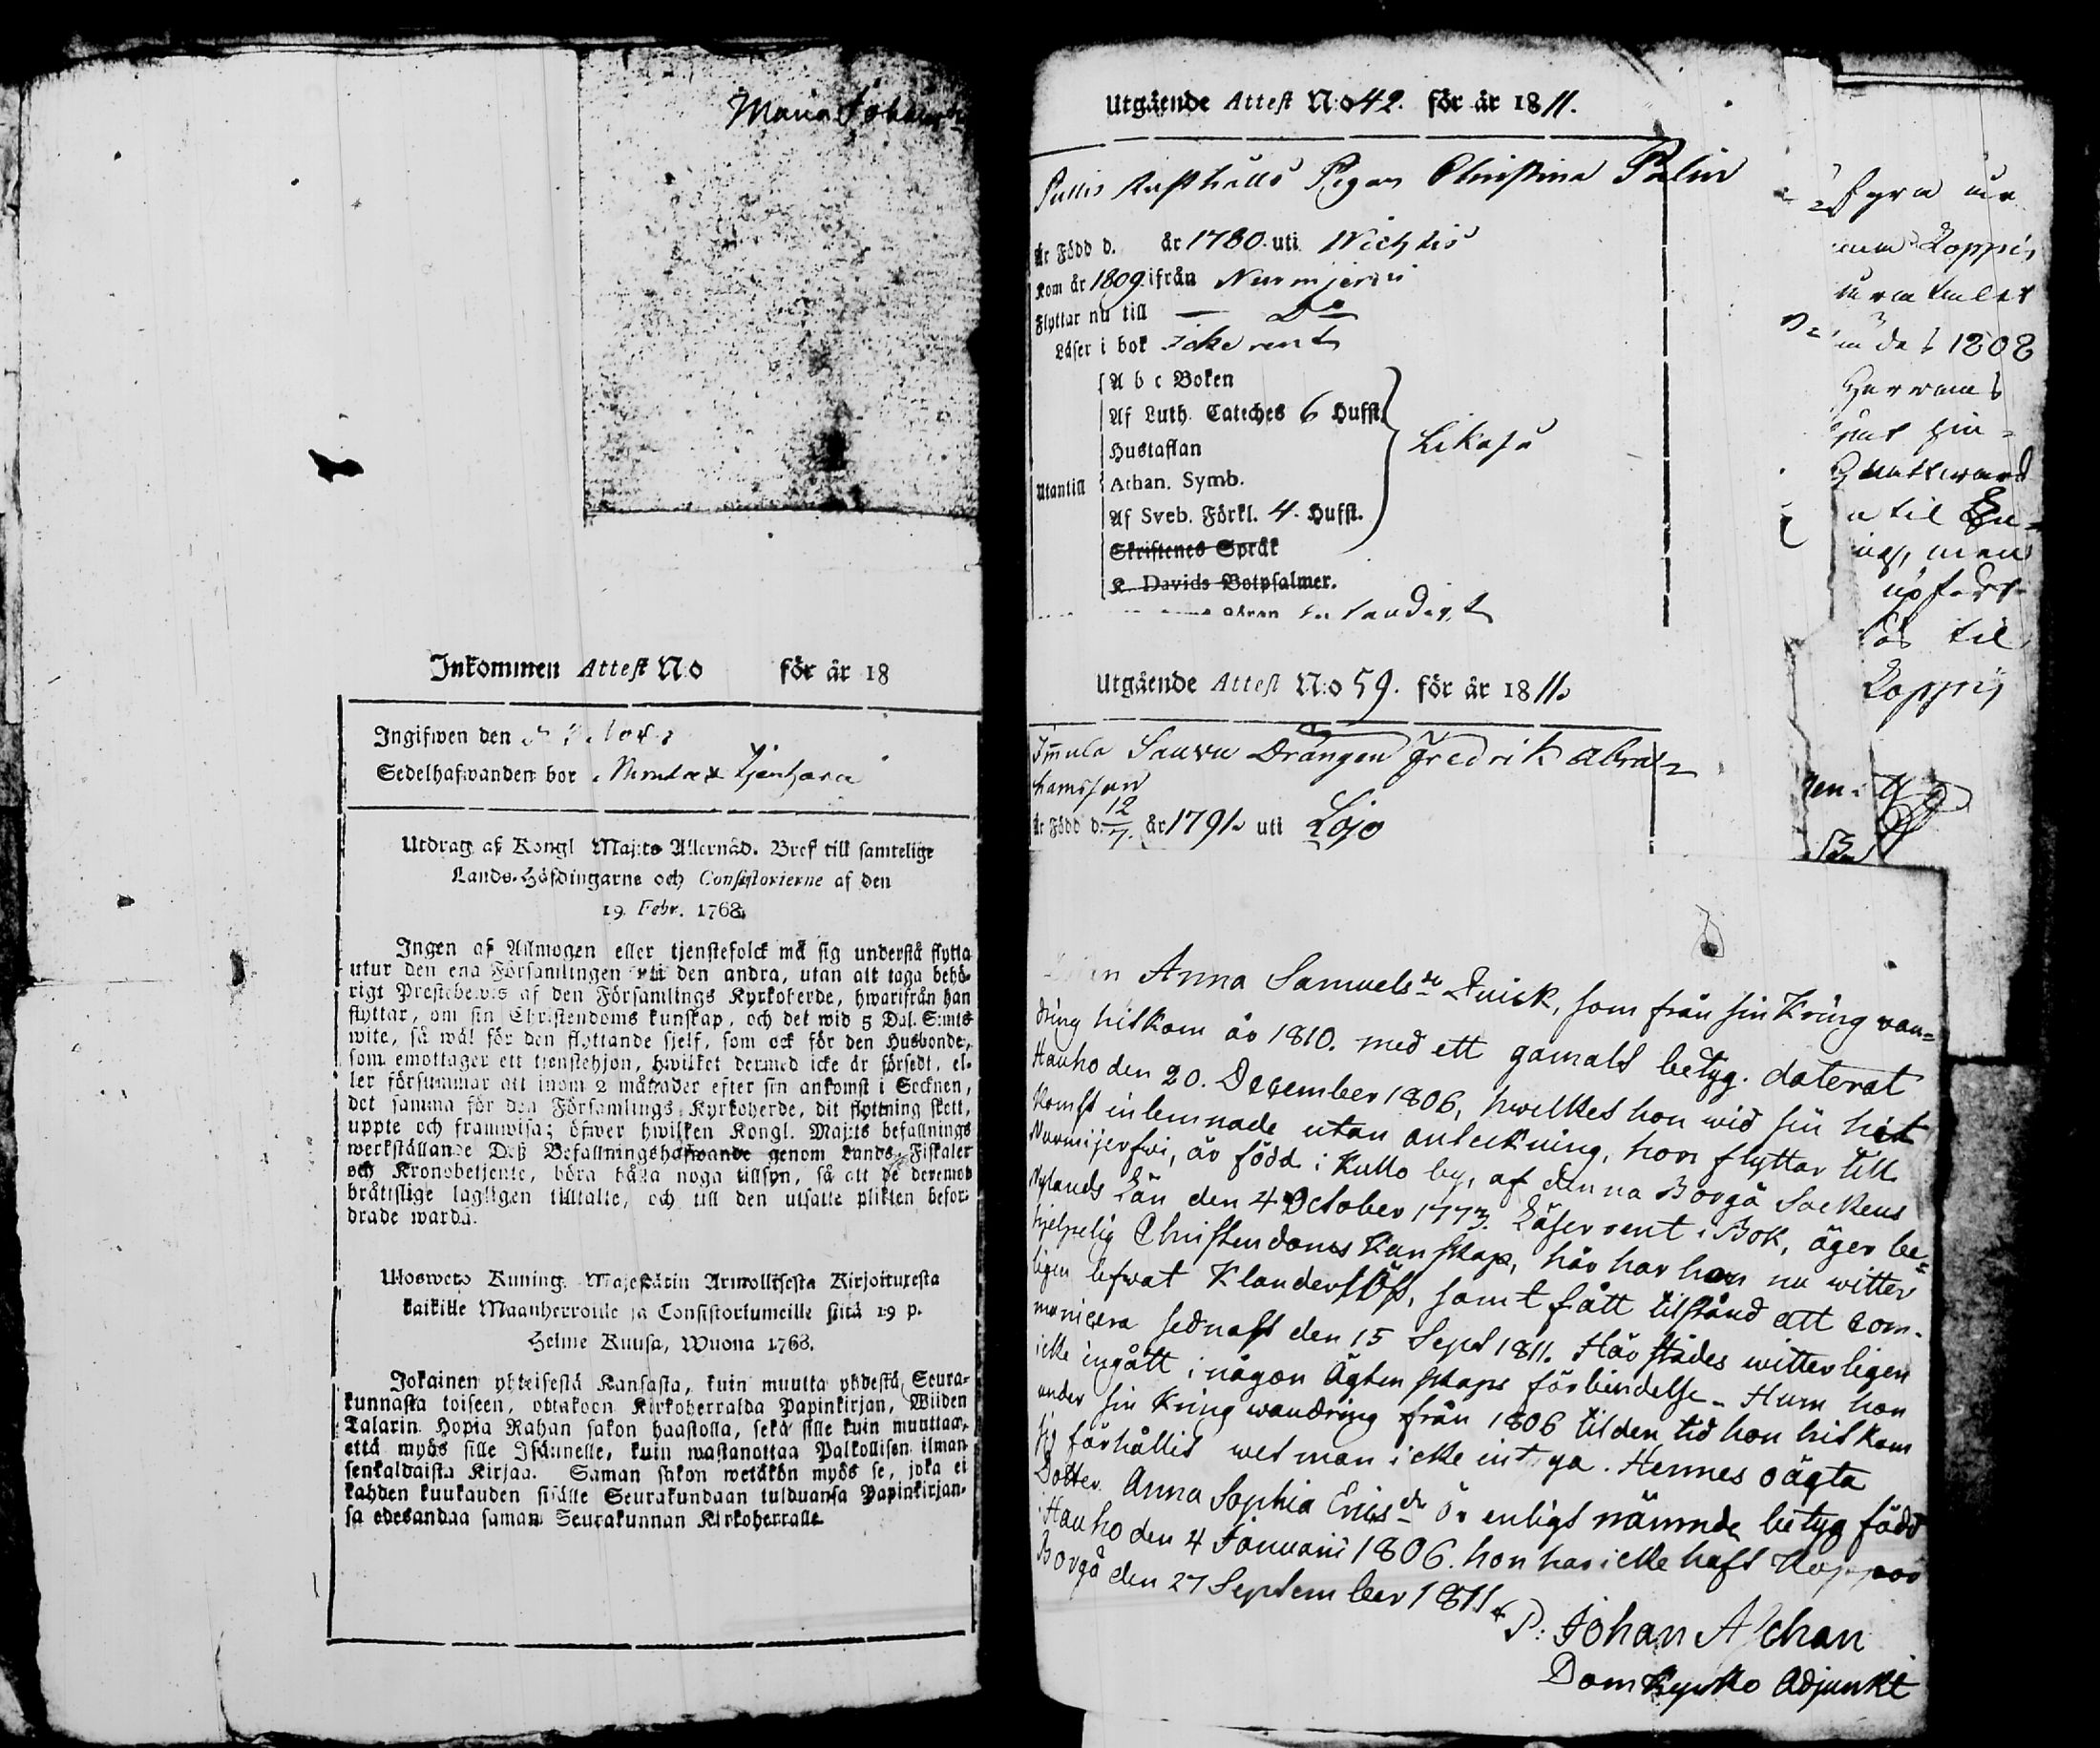 Maria Johans
Inkommen Attest N:o för år 18
Ingifwen den
Sedelhafwanden bor
Utdrag af Kongl Maj:ts Allernåd. Bref till samtelige
Lands-Höfdingarne och Consistorierne af den
19. Febr. 1768.
Ingen af Allmogen eller tjenstefolck må sig understå flytta
utur den ena Församlingen uti den andra, utan att taga behö-
rigt Prestebewis af den Församlings Kyrkoherde, hwarifrån han
flyttar, om sin Christendoms kunskap, och det wid 5 Dal. S:mts
wite, så wäl för den flyttande sjelf, som ock för den Husbonde,
som emottager ett tjenstehjon, hwilket dermed icke är försedt, el-
ler försummar att inom 2 månader efter sin ankomst i Socknen,
det samma för den Församlings Kyrkoherde, dit flyttning skett,
uppte och framwisa; öfwer hwilken Kongl. Maj:ts befallnings
werkställande Deß Befallningshafwande genom Lands Fiskaler
och Kronobetjente, böra hålla noga tillsyn, så att de deremot
bråttslige lagligen tilltalte, och till den utsatte plikten befor-
drade warda.
Ulosweto Kuning. Majestätin Armollisesta Kirjoituxesta
kaikille Maanherroille ja Consistoriumeille siitä 19 p.
Helme Kuusa, Wuona 1768.
Jokainen yhteisestä Kansasta, kuin muutta yhdestä Seura-
kunnasta toiseen, ottakoon Kirkoherralda Papinkirjan, Wiiden
Talarin Hopia Rahan sakon haastolla, sekä sille kuin muuttaa,
että myös sille Isännelle, kuin wastanottaa Palkollisen ilman
senkaldaista Kirjaa. Saman sakon wetäkön myös se, joka ei
kahden kuukauden sisälle Seurakundaan tulduansa Papinkirjan-
sa edesandaa saman Seurakunnan Kirkoherralle
Utgående Attest N:o 42. för år 1811.
Rusthålls Pigan Christina Palin
Är Född d. år 1780. uti Wichtis
Kom år 1809. ifrån Nurmijerwi
Flyttar nu till — Do
Läser i bok icke rent
A b c Boken
Af Luth. Cateches 6 Hufst.
Hustaflan
Likaså
Utantill Athan. Symb.
Af Sveb. Förkl. 4. Hufst.
Skriftenes Språk
K. Davids Botpsalmer.
Utgående Attest N:o 59. för år 1811.
Immula Sauru Drängen Fredrik Abra-
hamsson
Är Född d. 12/7. år 1791. uti Lojo
Anna Samuelsdr Quick, som från sin Kring wan-
dring hitkom år 1810. med ett gamalt betyg. daterat
Hauho den 20. December 1806, hwilket hon wid sin hit
komst inlemnade utan anteckning, hon flyttar till
Nurmijerfwi, är född i Kullo by, af denna Borgå Sockens
Nylands Län den 4 October 1773. Läser rent i Bok, äger be-
hjelpelig Christendoms Kunskap, här har hon nu witter
ligen lefwat Klanderlöst, samt fått tilstånd att com-
municera sednast den 15 Sept 1811. Här städes witterligen
icke ingått i någon Ägtenskaps förbindelse. Hum hon
under sin Kring wandring från 1806 til den tid hon hit kom
sig förhållit wet man icke intyga. Hennes oägta
Dotter Anna Sophia Ericsdr är enligt nämnde betyg född
i Hauho den 4 Januarii 1806. hon har icke haft Koppor
Borgå den 27 September 1811.
P: Johan Aschan
Domkyrko Adjunkt
fyra
Koppis
1808
Herrans
Nattward
til
men
til
Koppis